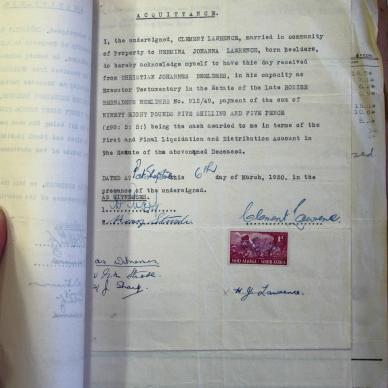 ACQUITTANCE.
I, the undersigned, CLEMENT LAWRENCE, married in community
of Property to HERMINA JOHANNA LAWRENCE, born Beelders,
do hereby acknowledge myself to have this day received
from CHRISTIAN JOHANNES BEELDERS, in his capacity as
Executor Testamentary in the Estate of the Late
BEELDERS No. 912/49, payment of the sum of
NINETY EIGHT POUNDS FIVE SHILLING AND FIVE PENCE
(£98: 5: 5:) being the cash awarded to me in terms of the
First and Final Liquidation and Distribution Account in
the Estate of the abovenamed Deceased.
DATED AT this 6th day of March, 1950, in the
presence of the undersigned.
AS WITNESSES
1.
Clement Lawrence.
as Witnesses
J. Sharp
H J Lawrence.
SUID-AFRIKA SOUTH AFRICA